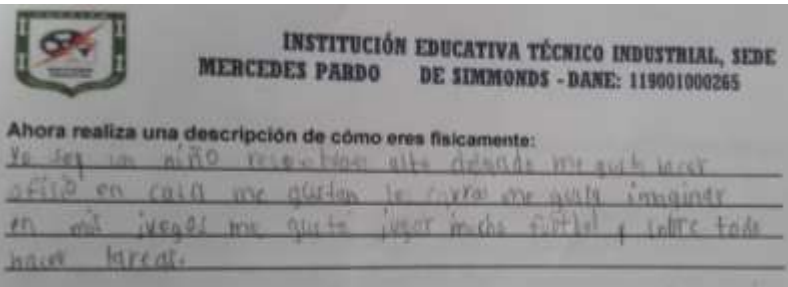 INSTITUCIÓN EDUCATIVA TÉCNICO INDUSTRIAL, SEDE
MERCEDES PARDO DE SIMMONDS - DANE: 119001000265
Ahora realiza una descripción de cómo eres fisicamente:
Yo soy un niño alto delgado me gusta hacer
oficio en casa me gustan me gusta imaginar
en mis juegos me gusta jugar mucho y sobre todo
hacer tareas.